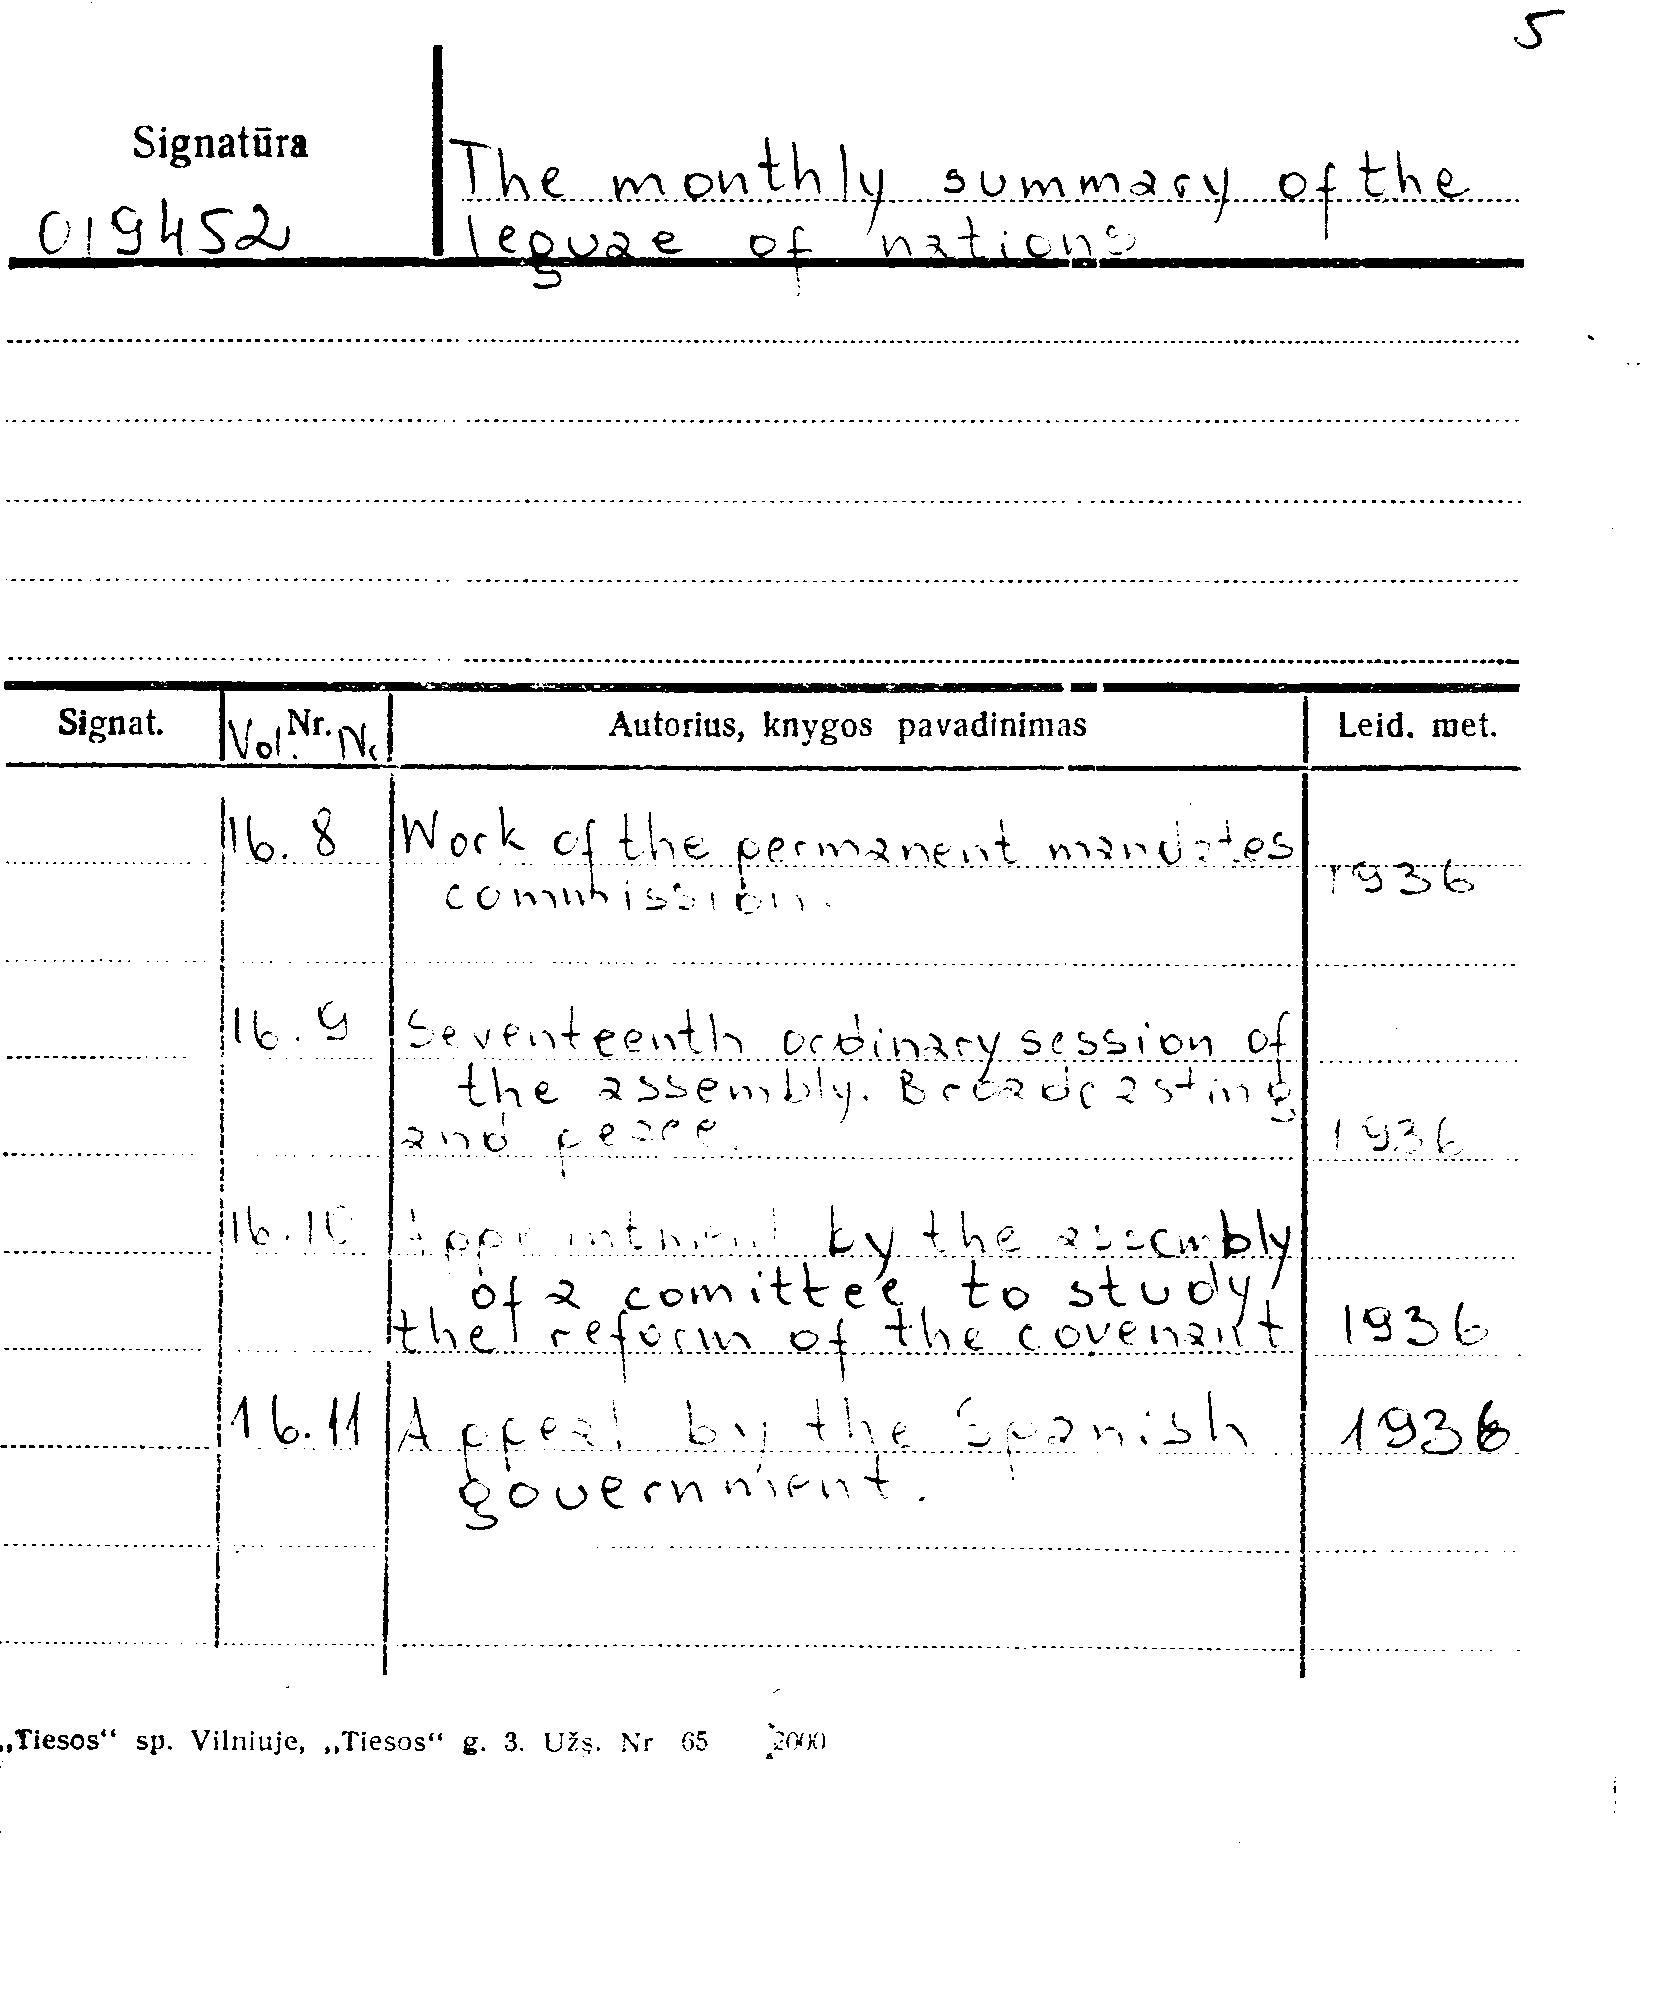 5
Signatūra
019452
The monthly summary of the
leguae of nations
Signat.
Nr.
Vol. Nr
Autorius, knygos pavadinimas
Leid. met.
16. 8
Work of the permanent mandates
commission.
1936
16. 9
Seventeenth ordinary session of
the assembly. Broadcasting
and peace.
1936
16. 10
Appointment by the assembly
of a comittee to study
the reform of the covenant
1936
16. 11
Appeal by the Spanish
government.
1936
„Tiesos“ sp. Vilniuje, „Tiesos“ g. 3. Užs. Nr 65 2000